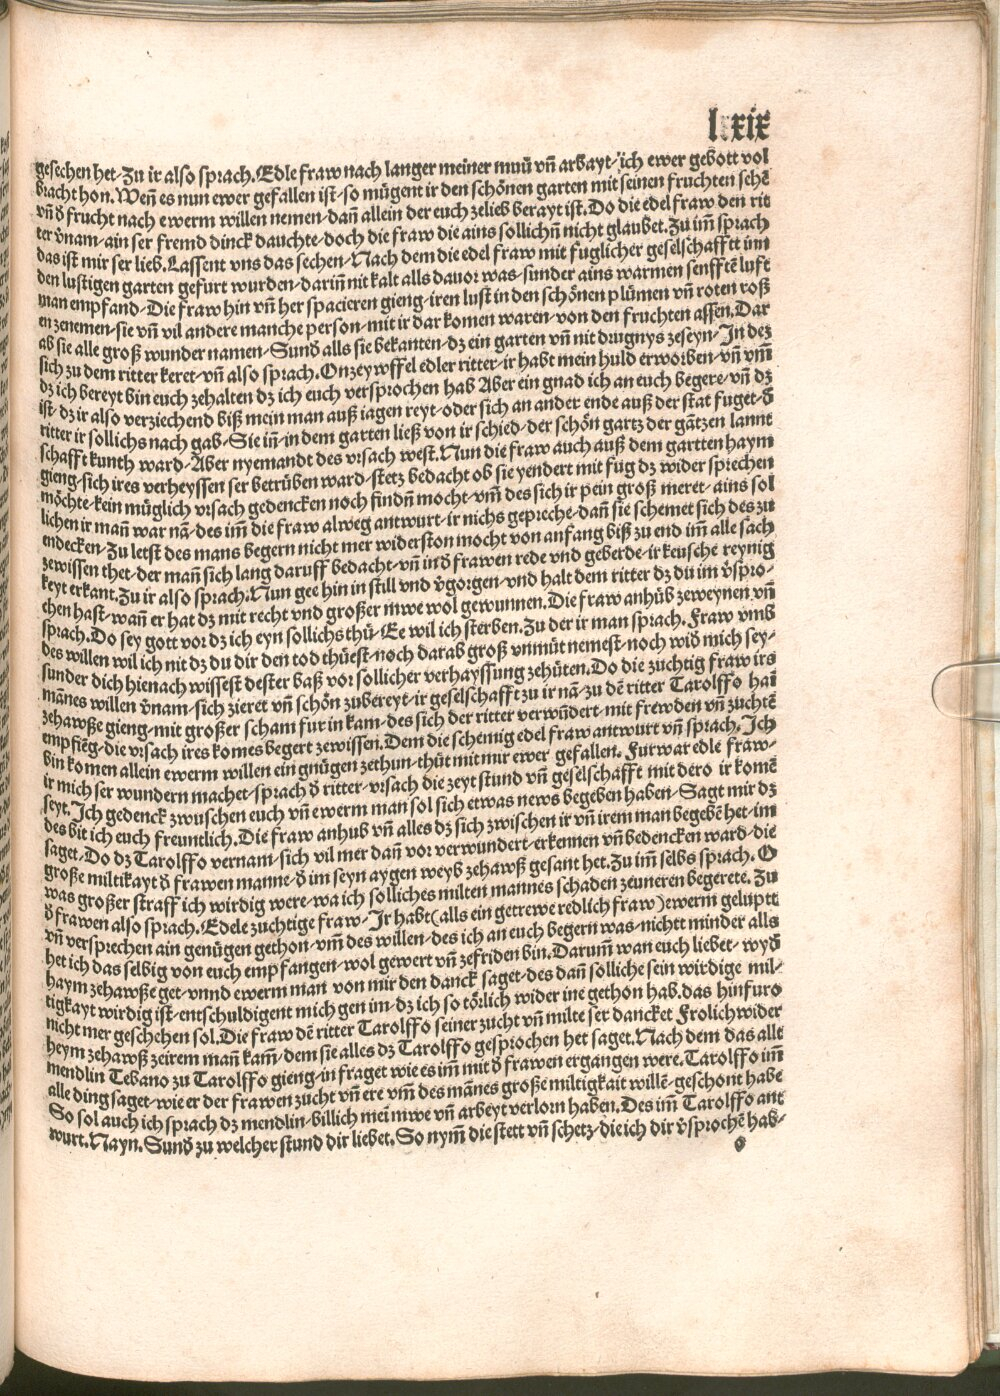 lxxix
gesechen het/ Zu ir also sprach. Edle fraw nach langer meiner muü vñ arbayt/ ich ewer gebott vol
bracht hon. Weñ es nun ewer gefallen ist/ so mügent ir den schönen garten mit seinen fruchten sehẽ
vñ d̕ frucht nach ewerm willen nemen/ dañ allein der euch zelieb berayt ist. Do die edel fraw den rit
ter v̕nam/ ain ser fremd dinck dauchte/ doch die fraw die ains sollichñ nicht glaubet. Zu im̃ sprach
das ist mir ser lieb. Lassent vns das sechen/ Nach dem die edel fraw mit fuglicher geselschafftt inn
den lustigen garten gefurt wurden/ dariñ nit kalt alls dauor was/ sunder ains warmen senfftẽ luft
man empfand/ Die fraw hin vñ her spacieren gieng/ iren lust in den schönen plümen vñ roten roß
en zenemen/ sie vñ vil andere manche person/ mit ir dar komen waren/ von den fruchten assen. Dar
ab sie alle groß wunder namen/ Sund̕ alls sie bekanten/ dz ein garten vñ nit drugnys zeseyn/ In dez
sich zu dem ritter keret/ vñ also sprach. Onzeywffel edler ritter/ ir habt mein huld erworben/ vñ vm̃
dz ich bereyt bin euch zehalten dz ich euch versprochen hab Aber ein gnad ich an euch begere/ vñ dz
ist/ dz ir also verziechend biß mein man auß iagen reyt/ oder sich an ander ende auß der stat fuget/ d̕
ritter ir sollichs nach gab/ Sie iñ/ in dem garten ließ von ir schied/ der schön gartz der gãtzen lannt
schafft kunth ward/ Aber nyemandt des vrsach west. Nun die fraw auch auß dem gartten haym
gieng/ sich ires verheyssen ser betrüben ward/ stetz bedacht ob sie yendert mit füg dz wider spiechen
möchte/ kein müglich vrsach gedencken noch findñ mocht/ vm̃ des sich ir pein groß meret/ ains sol
lichen ir mañ war nã/ des im̃ die fraw alweg antwurt/ ir nichs gepreche/ dañ sie schemet sich des zu
endecken/ Zu letst des mans begern nicht mer widerston mocht von anfang biß zu end im̃ alle sach
zewissen thet/ der mañ sich lang daruff bedacht/ vñ in d̕ frawen rede vnd geberde/ ir keusche reynig
keyt erkant. Zu ir also sprach. Nun gee hin in still vnd v̕gorgen/ vnd halt dem ritter dz du im v̕spro/
chen hast/ wañ er hat dz mit recht vnd großer mwe wol gewunnen. Die fraw anhüb zeweynen vñ
sprach. Do sey gott vor dz ich eyn sollichs thü/ Ee wil ich sterben. Zu der ir man sprach. Fraw vmb
des willen wil ich nit dz du dir den tod thüest/ noch darab groß vnmüt nemest/ noch wid̕ mich sey/
sunder dich hienach wissest dester baß vor sollicher verhayssung zehüten. Do die zuchtig fraw irs
mãnes willen v̕nam/ sich zieret vñ schön zubereyt/ ir geselschafft zu ir nã/ zu dẽ ritter Tarolffo hai
zehawße gieng/ mit großer scham fur in kam/ des sich der ritter verwũdert/ mit frewden vñ zuchtẽ
empfieng/ die vrsach ires komes begert zewissen. Dem die schemig edel fraw antwurt vñ sprach. Ich
bin komen allein ewerm willen ein gnügen zethun/ thüt mit mir ewer gefallen. Furwar edle fraw/
ir mich ser wundern machet/ sprach d̕ ritter/ vrsach die zeyt stund vñ geselschafft mit dero ir komẽ
seyt. Ich gedenck zwuschen euch vñ ewerm man sol sich etwas news begeben haben/ Sagt mir dz
des bit ich euch freuntlich. Die fraw anhub vñ alles dz sich zwischen ir vñ irem man begebẽ het/ im
saget/ Do dz Tarolffo vernam/ sich vil mer dañ vor verwundert/ erkennen vñ bedencken ward/ die
große miltikayt d̕ frawen manne/ d̕ im seyn aygen weyb zehawß gesant het. Zu im̃ selbs sprach. O
was großer straff ich wirdig were/ wa ich solliches milten mannes schaden zeuneren begerete. Zu
d̕ frawen also sprach. Edele zuchtige fraw/ Ir habt (alls ein getrewe redlich fraw) ewerm gelüptt
vñ versprechen ain genügen gethon/ vm̃ des willen/ des ich an euch begern was/ nichtt minder alls
het ich das selbig von euch empfangen/ wol gewert vñ zefriden bin. Darum̃ wan euch liebet/ wyd̕
haym zehawße get/ vnnd ewerm man von mir den danck saget/ des dañ solliche sein wirdige mil/
tigkayt wirdig ist/ entschuldigent mich gen im/ dz ich so törlich wider ine gethon hab. das hinfuro
nicht mer geschehen sol. Die fraw dẽ ritter Tarolffo seiner zucht vñ milte ser dancket Frolich wider
heym zehawß zeirem mañ kam̃/ dem sie alles dz Tarolffo gesprochen het saget. Nach dem das alte
mendlin Tebano zu Tarolffo gieng/ in fraget wie es im̃ mit d̕ frawen ergangen were. Tarolffo im̃
alle ding saget/ wie er der frawen zucht vñ ere vm̃ des mãnes große miltigkait willẽ/ geschont habe
So sol auch ich sprach dz mendlin/ billich mein mwe vñ arbeyt verlorn haben. Des im̃ Tarolffo ant
wurt. Nayn. Sund̕ zu welcher stund dir liebet. So nym̃ die stett vñ schetz/ die ich dir v̕sprochẽ hab/